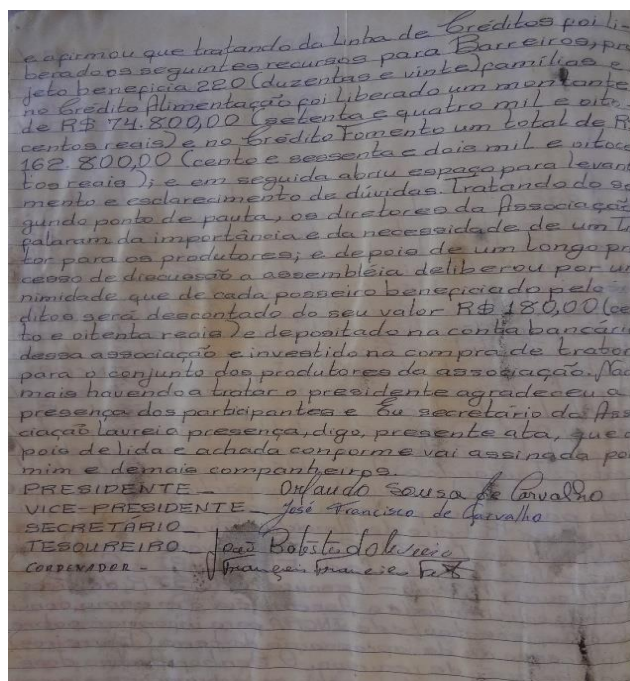 e afirmou que tratando da linha de Créditos foi li-
berado os seguintes recursos para Barreiros, pro
jeto beneficia 220 (duzentas e vinte) famílias e
no Crédito Alimentação foi liberado um montante
de R$ 74.800,00 (setenta e quatro mil e oito-
centos reais) e no Crédito Fomento um total de R$
162.800,00 (cento e sessenta e dois mil e oitocen
tos reais); e em seguida abriu espaço para levan
mento e esclarecimento de dúvidas. Tratando do se
gundo ponto de pauta, os diretores da Associação
falaram da importância e da necessidade de um Tra
tor para os produtores; e depois de um longo pro
cesso de discussão a assembléia deliberou por una
nimidade que de cada posseiro beneficiado pelo
ditos será descontado do seu valor R$ 180,00 (cen
to e oitenta reais) e depositado na conta bancária
dessa associação e investido na compra de trator
para o conjunto dos produtores da associação. Não
mais havendo a tratar o presidente agradeceu a
presença dos participantes e Eu secretário da Ass
ciação lavrei a presença, digo, presente ata, que de
pois de lida e achada conforme vai assinada por
mim e demais companheiros.
PRESIDENTE - Orlando Sousa de Carvalho
VICE-PRESIDENTE - José Francisco de Carvalho
SECRETÁRIO
TESOUREIRO - João Batista
CORDENADOR -